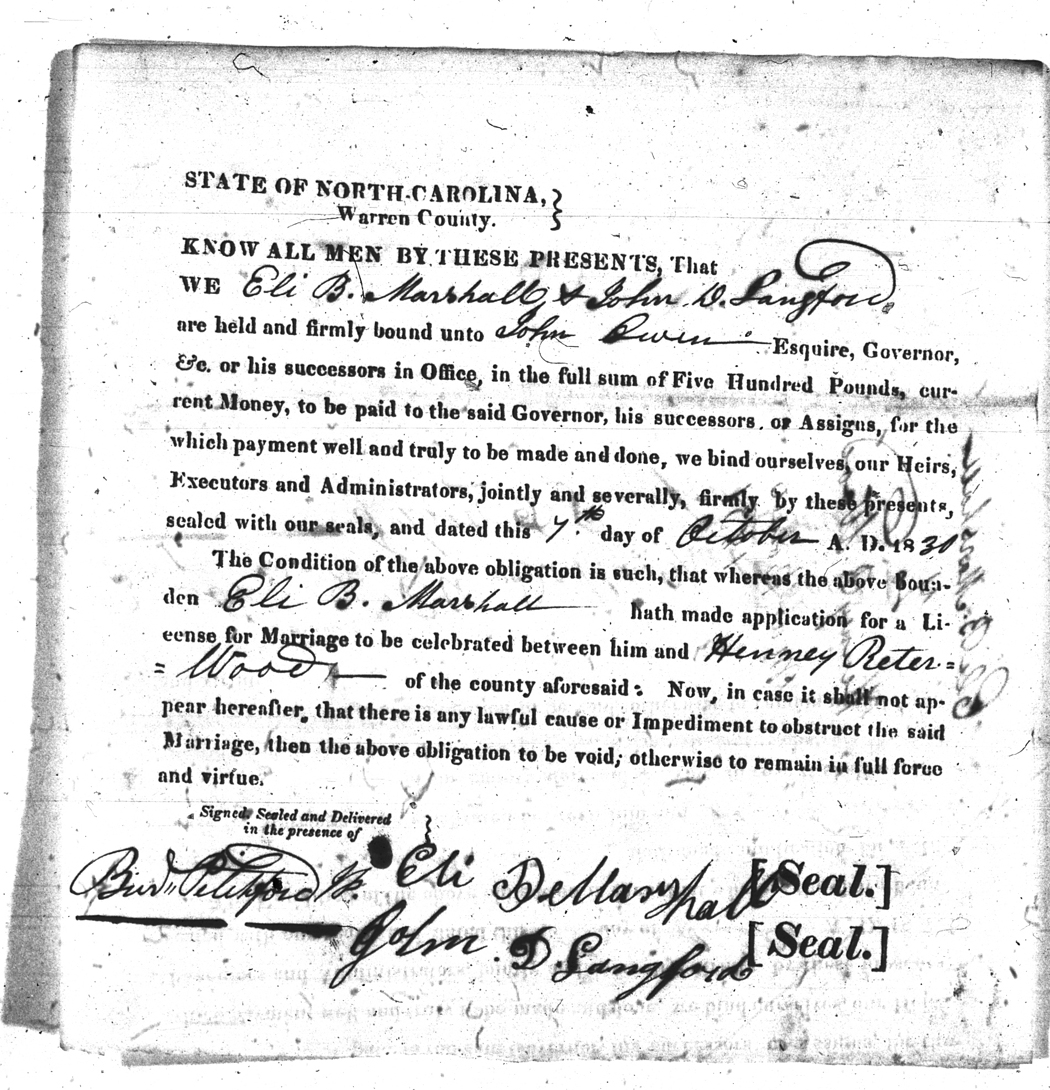 STATE OF NORTH-CAROLINA,
Warren County.
KNOW ALL MEN BY THESE PRESENTS, That
WE Eli B. Marshall & John D. Langford
are held and firmly bound unto John Owen Esquire, Governor,
&c. or his successors in Office, in the full sum of Five Hundred Pounds, cur-
rent Money, to be paid to the said Governor, his successors or Assigns, for the
which payment well and truly to be made and done, we bind ourselves, our Heirs,
Executors and Administrators, jointly and severally, firmly by these presents,
sealed with our seals, and dated this 7th day of October A. D. 1830
The Condition of the above obligation is such, that whereas the above Boun-
den Eli B. Marshall hath made application for a Li-
cense for Marriage to be celebrated between him and Henney Peter=
=Wood of the county aforesaid: Now, in case it shall not ap-
pear hereafter, that there is any lawful cause or Impediment to obstruct the said
Marriage, then the above obligation to be void; otherwise to remain in full force
and virtue.
Signed, Sealed and Delivered
in the presence of
Eli B Marshall [Seal.]
John D Langford [Seal.]